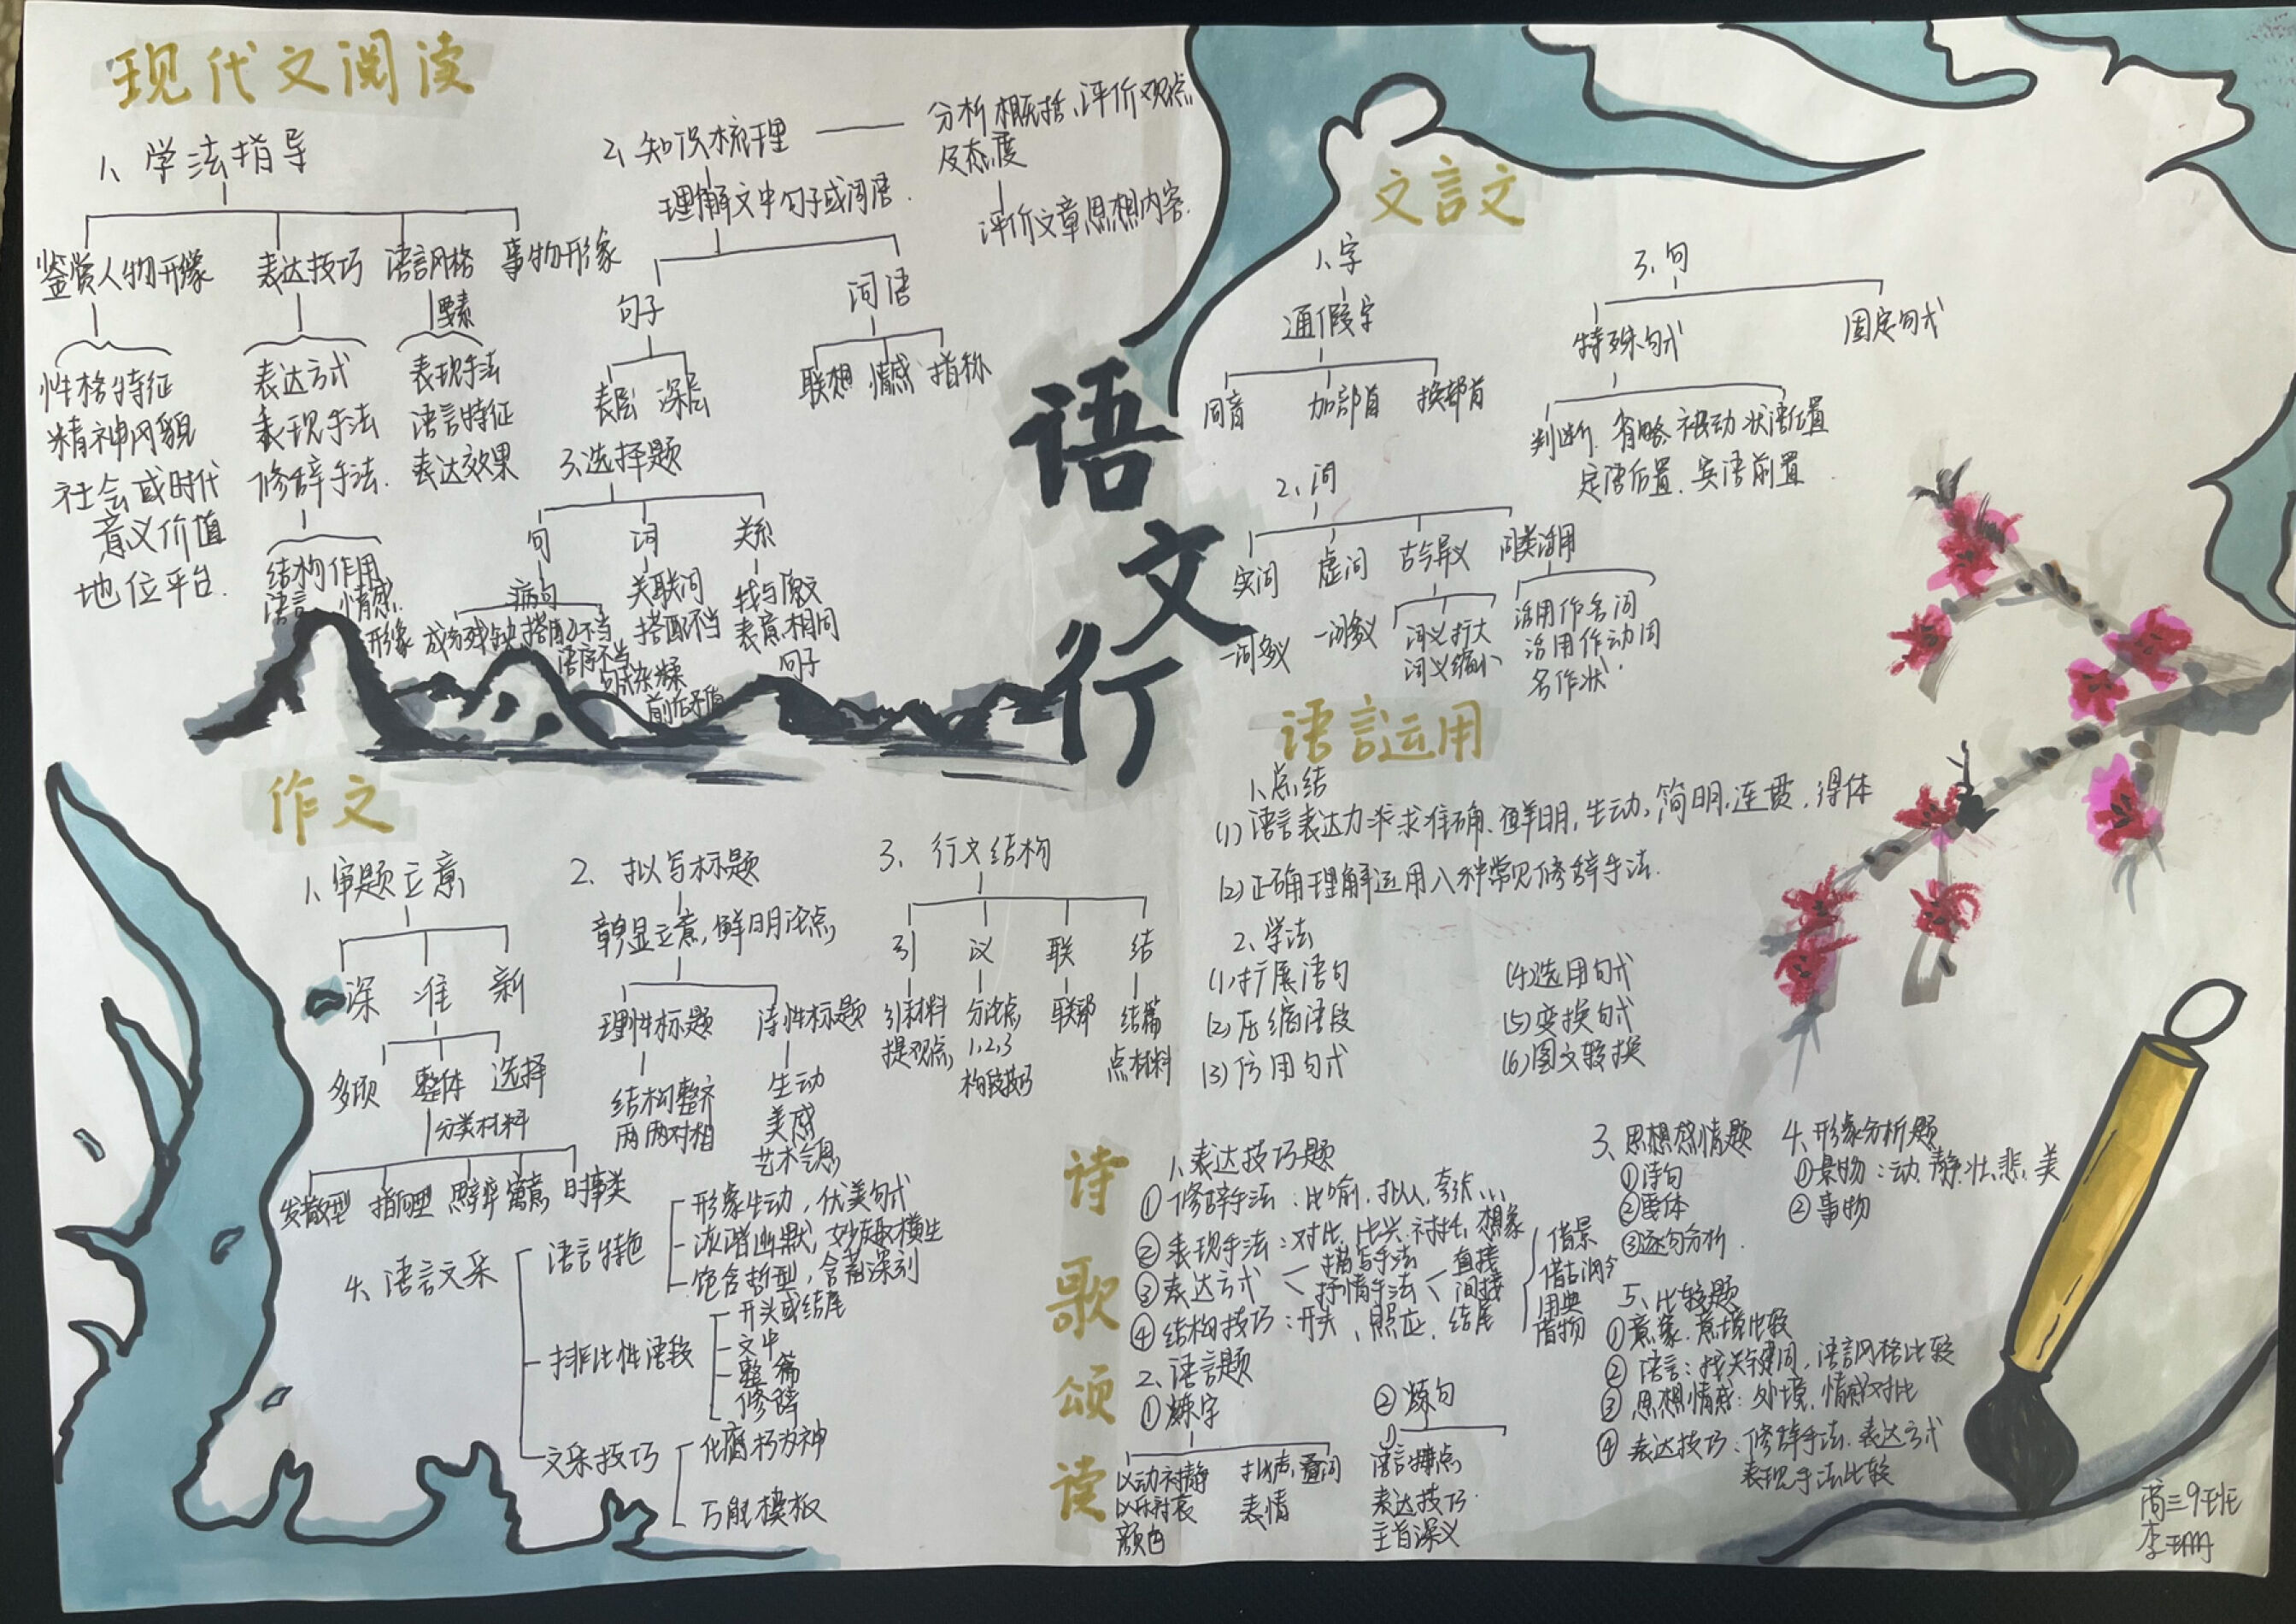 现代文阅读
1、学法指导
鉴赏人物形像 表达技巧 语言风格 事物形象
要素
性格特征
精神风貌
社会或时代
意义价值
地位平台.
表达方式
表现手法
修辞手法.
结构作用
语言 情感
形象
表现手法
语言特征
表达效果
2、知识梳理
分析概括、评价观点
及态度
评价文章思想内容.
理解文中句子或词语.
句子 词语
表层 深层
联想 情感 指称
3、选择题
句 词 关系
病句
成分残缺 搭配不当
语序不当
句式杂糅
前后矛盾
关联词
搭配不当
找与原文
表意相同
句子
语文行
文言文
1、字
通假字
同音 加部首 换部首
2、词
实词 虚词 古今异义 词类活用
一词多义 一词多义
词义扩大
词义缩小
活用作名词
活用作动词
名作状
3、句
特殊句式 固定句式
判断、省略 被动 状语后置
定语后置、宾语前置
语言运用
1、总结
(1) 语言表达力求准确、鲜明,生动,简明,连贯,得体
(2) 正确理解运用八种常见修辞手法.
2、学法
(1)扩展语句
(2)压缩语段
(3)仿用句式
(4)选用句式
(5)变换句式
(6)图文转换
作文
1、审题立意
深 准 新
多项 整体 选择
分类材料
发散型 指向型 思辨 寓意 时事类
2、拟写标题
彰显立意,鲜明论点,
理性标题 诗性标题
结构整齐
两两对相
生动
美感
艺术气息
3、行文结构
引 议 联 结
引材料
提观点
分论点
1,2,3
构段技巧
联部
结篇
点材料
4、语言文采
语言特色
形象生动,优美句式
诙谐幽默,妙趣横生
饱含哲型,含蓄深刻
排比性语段
开头或结尾
文中
整篇
修辞
文采技巧
化腐朽为神
万能模板
诗歌颂读
1、表达技巧题
① 修辞手法:比喻,拟人,夸张...
② 表现手法:对比,比兴,衬托,想象
③ 表达方式 描写手法
抒情手法 直接
间接
借景
借古讽今
用典
借物
④ 结构技巧:开头、照应、结尾
2、语言题
① 炼字 ② 炼句
以动衬静
以乐衬哀
颜色
拟声,叠词
表情
语言特点
表达技巧.
主旨深义
3、思想感情题
①诗句
②整体
③逐句分析.
4、形象分析题
①景物:动,静,壮,悲,美
②事物
5、比较题
①意象、意境比较
② 语言:找关键词,语言风格比较
③ 思想情感:处境,情感对比
④ 表达技巧:修辞手法、表达方式
表现手法比较
高三9班
李珊